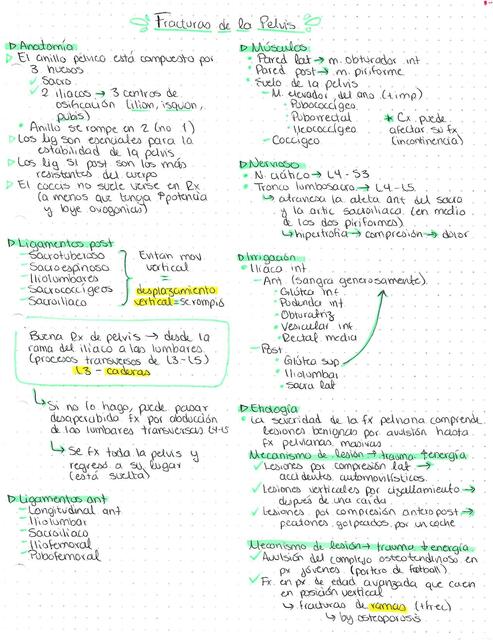 Fracturas de la Pelvis
Anatomía
El anillo pelvico está compuesto por
3 huesos
Sacro
2 iliacos → 3 centros de
osificación (ilion, isquion,
pubis)
Anillo se rompe en 2 (no 1)
Los lig son esenciales para la
estabilidad de la pelvis
Los lig SI post son los más
resistentes del cuerpo
El coccis no suele verse en Rx
(a menos que tenga ↑potencia
y baje ovogonias)
Ligamentos post
Sacrotuberoso
Sacroespinoso
Iliolumbares
Sacrococcígeos
Sacroiliaco
Evitan mov
vertical
=
desplazamiento
vertical = se rompió
Buena Rx de pelvis → desde la
rama del iliaco a las lumbares
(procesos transversos de L3-L5)
L3 - caderas
Si no lo hago, puede pasar
desapercibida fx por abducción
de las lumbares transversas L4-L5
Se fx toda la pelvis y
regresó a su lugar
(está suelta)
Ligamentos ant
Longitudinal ant
Iliolumbar
Sacroiliaco
Iliofemoral
Pubofemoral
Músculos
Pared lat → m. obturador int
Pared post → m. piriforme
Suelo de la pelvis
M. elevador del ano (+imp)
Pubococcígeo
Puborrectal
Ileococcígeo
Coccígeo
* Cx puede
afectar su fx
(incontinencia)
Nervioso
N. ciático → L4-S3
Tronco lumbosacro → L4-L5
atraviesa la aleta ant del sacro
y la artic sacroiliaca (en medio
de los dos piriformes)
hipertrofia → compresión → dolor
Irrigación
Iliaca int
Ant (sangra generosamente)
Glútea inf
Pudenda int
Obturatriz
Vesicular inf
Rectal media
Post
Glútea sup
Iliolumbar
Sacra lat
Etiología
La severidad de la fx pelviana comprende
lesiones benignas por avulsión hasta
fx pelvianas masivas
Mecanismo de lesión → trauma ↑energía
Lesiones por compresión lat →
accidentes automovilísticos
Lesiones verticales por cizallamiento →
después de una caída
Lesiones por compresión anteropost →
peatones golpeados por un coche
Mecanismo de lesión → trauma ↓energía
Avulsión del complejo osteotendinoso en
px jóvenes (portero de football)
Fx en px de edad avanzada que caen
en posición vertical
fracturas de ramas (+frec)
by osteoporosis